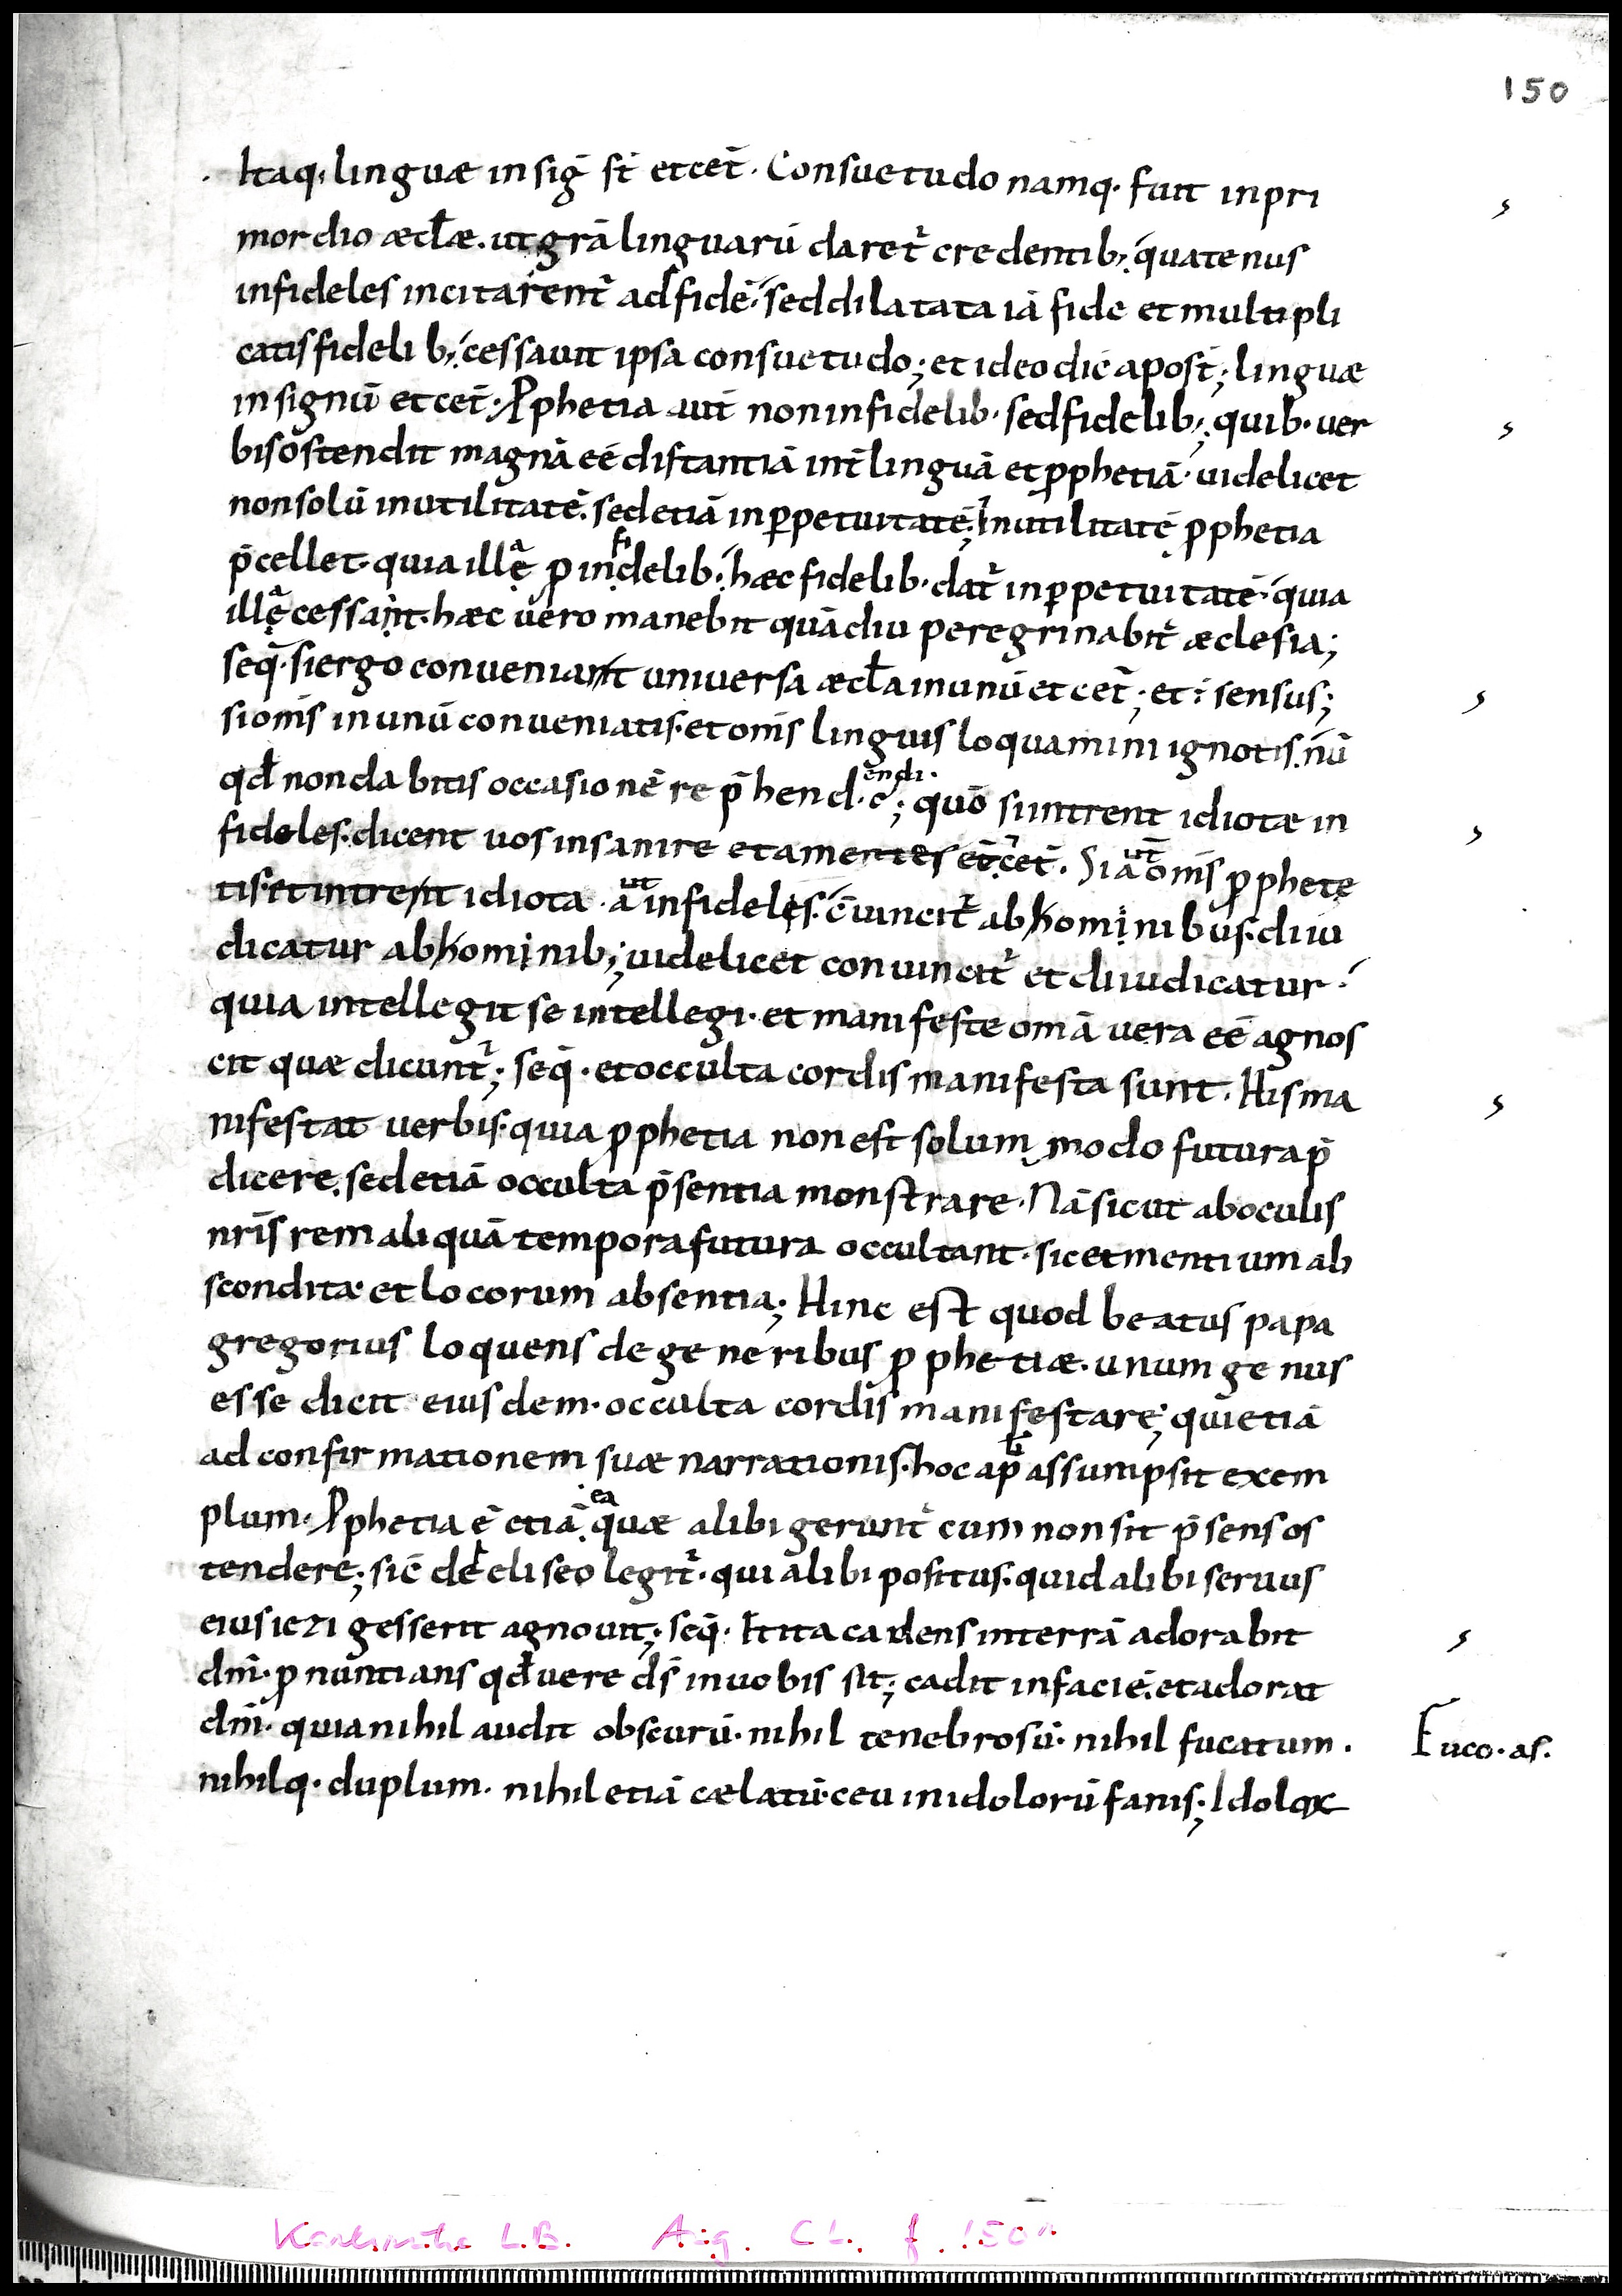 150
Itaq; linguæ in sig̅ st̅ et cet̅. Consuetudo namq. fuit in pri
mordio æcl̅æ. ut gr̅a linguarū daret᷑ credentib; quatenus
infideles incitarent᷑ ad fidē. sed dilatata iā fide et multipli
catis fidelib; cessauit ipsa consuetudo; et ideo dic̅ apost̅; linguæ
in signū et cet̅. Ꝓphetia aut̅ non infidelib. sed fidelib; quib. uer
bis ostendit magnā eē distantiā int̅ linguā et ꝓphetiā. uidelicet
non solū in utilitatē. sed etiā in ꝑpetuitatē; In utilitatē ꝓphetia
p̄cellet. quia illę̀ a ꝓ infidelib. hæc fidelib. dat᷑ in ꝑpetuitatē. quia
illę a cessaint. hæc uero manebit quādiu peregrinabit᷑ æclesia;
seq̅. si ergo conueniant uniuersa æcl̅a in unū et cet̅; et ē sensus;
si om̅s in unū conueniatis. et om̅s linguis loquamini ignotis. nū
qd̅ non dabitis occasionē rep̄hend.c endi; quō si intrent idiotæ in
fideles. dicent uos insanire et amentes eē. cet̅. Si aut̅ om̅s ꝓphete
tis. et intrent idiota. aut infideles. c̅uincit᷑ ab hominibus. diiu
dicatur ab hominib; uidelicet conuincit᷑ et diiudicatur.
quia intellegit se intellegi. et manifeste om̅a uera eē agnos
cit quæ dicunt᷑; seq̅. et occulta cordis manifesta sunt. His ma
nifestat uerbis. quia ꝓphetia non est solum modo futura p̄
dicere. sed etiā occulta p̄sentia monstrare. Nā sicut ab oculis
nr̅is rem aliquā tempora futura occultant. sic et mentium ab
sconditæ et locorum absentia; Hinc est quod beatus papa
gregorius loquens de generibus ꝓphetiæ. unum genus
esse dicit eiusdem. occulta cordis manifestare; qui etiā
ad confirmationem suæ narrationis. hoc ap̅ li assumpsit exem
plum. Ꝓphetia ē etiā ea quæ alibi gerunt᷑ cum non sit p̄sens os
tendere; sic̅ de eliseo legit᷑. qui alibi positus. quid alibi seruus
eius iezi gesserit agnouit; seq̅. Et ita cadens in terrā adorabit
dm̅. ꝓnuntians qd̅ uere ds̅ in uobis sit; cadit in faciē. et adorat
dm̅. quia nihil audit obscurū. nihil tenebrosū. nihil fucatum.
Fuco. as.
nihilq. duplum. nihil etiā cælatū. ceu in idolorū fanis; Idolox
Karlsruhe L.B. Aug. CL. f. 150r